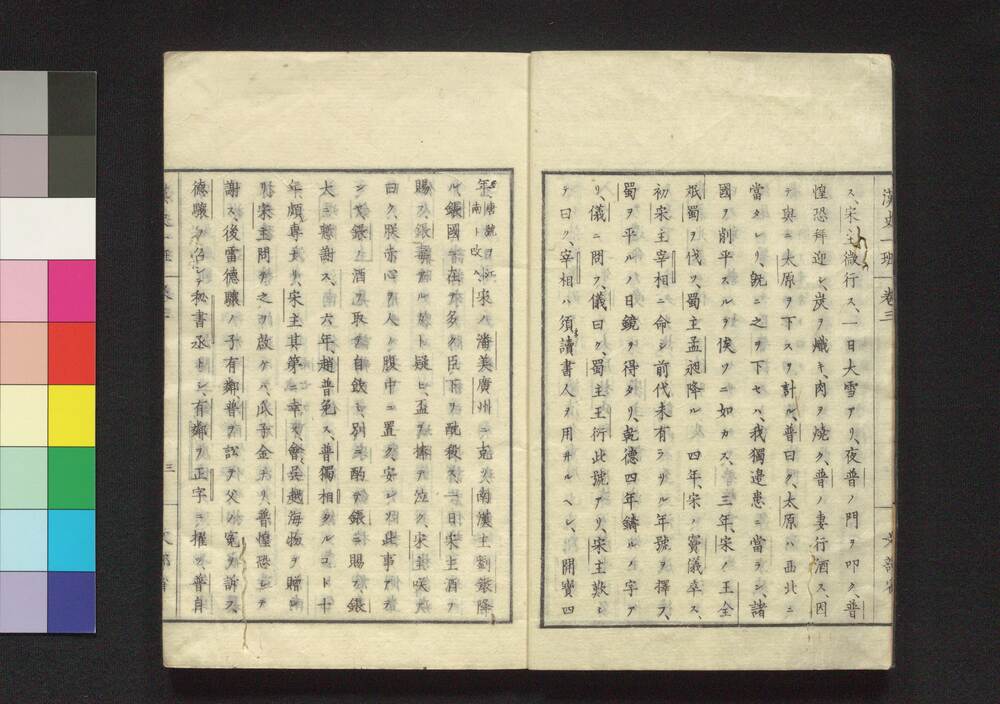 漢史一班 卷三
ス、宋主微行ス、一日大雪アリ、夜普ノ門ヲ叩ク、普
惶恐拜迎シ、炭ヲ熾キ、肉ヲ燒ク、普ノ妻行酒ス、因
テ與ニ太原ヲ下スヲ計ル、普曰ク、太原ハ西北ニ
當タレリ、旣ニ之ヲ下セハ、我獨邊患ニ當ラン、諸
國ヲ削平スルヲ俟ツニ如カス、三年、宋ノ王全
斌蜀ヲ伐ツ、蜀主孟昶降ル、四年、宋ノ竇儀卒ス、
初宋主宰相ニ命シ前代未有ラサル年號ヲ擇フ、
蜀ヲ平ルノ日鏡ヲ得タリ、乾德四年鑄ルノ字ア
リ、儀ニ問フ、儀曰ク、蜀主王衍此號アリ、宋主歎シ
テ曰ク、宰相ハ須讀書人ヲ用井ルヘシ、開寶四
年、唐號ヲ江南ト改ム宋ノ潘美廣州ニ克ツ、南漢主劉鋹降
ル、鋹國ニ在テ多ク臣下ヲ酖殺ス、一日宋主酒ヲ
賜フ、鋹毒アルカト疑ヒ、盃ヲ捧テ泣ク、宋主咲テ
曰ク、朕赤心ヲ人ノ腹中ニ置ク、安ンソ此事アラ
ンヤ、鋹ノ酒ヲ取テ自飮シ、別ニ酌テ鋹ニ賜フ、鋹
大ニ慙謝ス、六年、趙普免ス、普獨相タルコト十
年、頗專ナリ、宋主其第ニ幸ス、會吳越海物ヲ贈ル
リ、宋主問テ之ヲ啟ケハ、瓜子金ナリ、普惶恐シテ
謝ス、後雷德驤ノ子有鄰普ヲ訟ヲ父ノ冤ヲ訴ス、
德驤ヲ召シテ秘書丞トシ、有鄰ヲ正字ニ擢ツ、普自
三
文部省